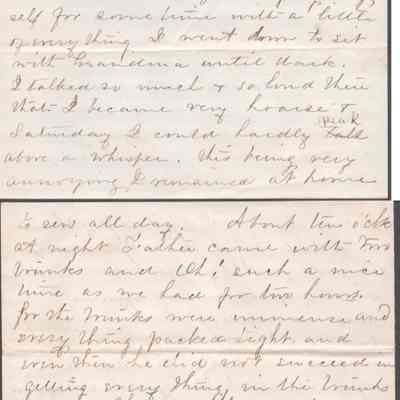 self for some time with a little
of everything I went down to sit
with Grandma until dark.
I talked so much & so loud there
that I became very hoarse &
Saturday I could hardly speak talk
above a whisper. This being very
annoying I remained at home
to sew all day. About ten o'clk
at night Father came with two
trunks and Oh! such a nice
time as we had for two hours.
for the trunks were immense and
every thing packed tight and
even then he did not succeed in
getting every thing in the trunks